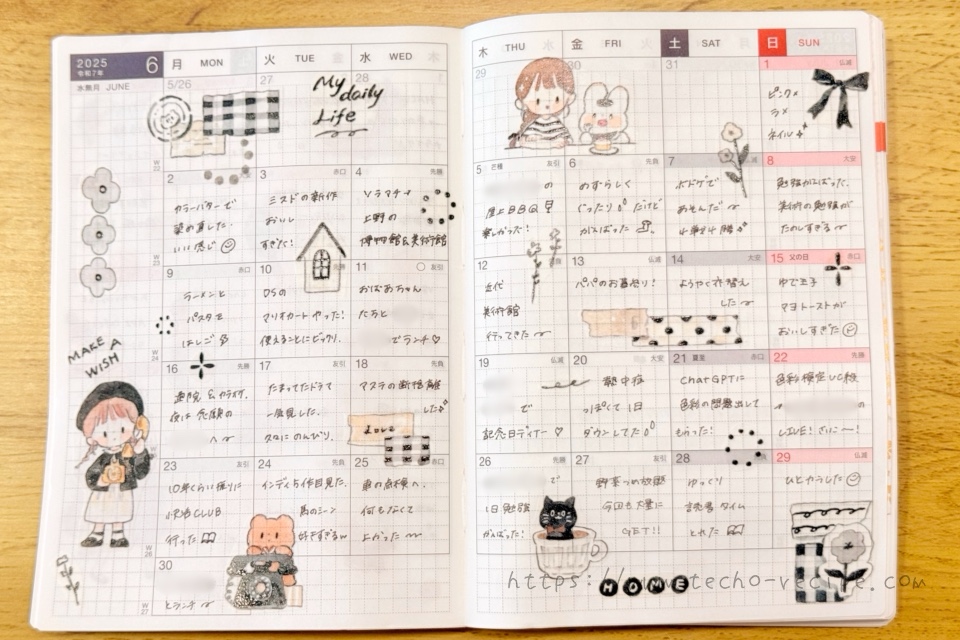 2025
令和7年
6
水無月 JUNE
月 MON
火 TUE
水 WED
木 THU
金 FRI
土 SAT
日 SUN
5/26
27
28
29
30
31
1 仏滅
My
daily
Life
ピンク×
ラメ
ネイル
W
22
2
カラーバターで
染め直した。
いい感じ
3 赤口
ミスドの新作
おいし
すぎた!
4 先勝
ソラマチ→
上野の
博物館&美術館
5 芒種 友引
の
屋上BBQ
楽しかった!
6 先負
めずらしく
ぐったり だけど
がんばった
7 仏滅
ボドゲで
あそんだ〜
8 大安
勉強がんばった。
美術の勉強が
たのしすぎる〜
9 赤口
ラーメンと
パスタを
はしご
W
24
10 先勝
DSの
マリオカートやった!
使えることにビックリ。
11 友引
おばあちゃん
たちと
でランチ♡
12
近代
美術館
行ってきた〜
13 仏滅
パパのお墓参り!
14 大安
ようやく衣替え
した〜
15 父の日 赤口
ゆで玉子
マヨトーストが
おいしすぎた
MAKE A
WISH
16 先勝
&カラオケ。
夜は 念願の
へ〜
17 友引
たまってたドラマ
一気見した。
久々に のんびり。
18 先負
マステの断捨離
した
Love
19 仏滅
で
記念日ディナー ♡
20 大安
熱中症
っぽくて 1日
ダウンしてた
21 夏至 赤口
ChatGPTに
色彩の問題出して
もらった!
22 先勝
色彩検定UC級
の
LIVE! さいこ〜!
23 友引
10年くらい振りに
快活CLUB
行った
W
26
24 先負
インディ5作目見た。
馬のシーン
好きすぎるw
25 赤口
車の点検へ。
何もなくて
よかった〜
26 先勝
で
1日 勉強
がんばった!
27 友引
野菜つめ放題
今回も大量に
GET!!
28 先負
ゆっくり
読書タイム
とれた
29 仏滅
ひとやすみした
30
とランチ〜
W
27
HOME